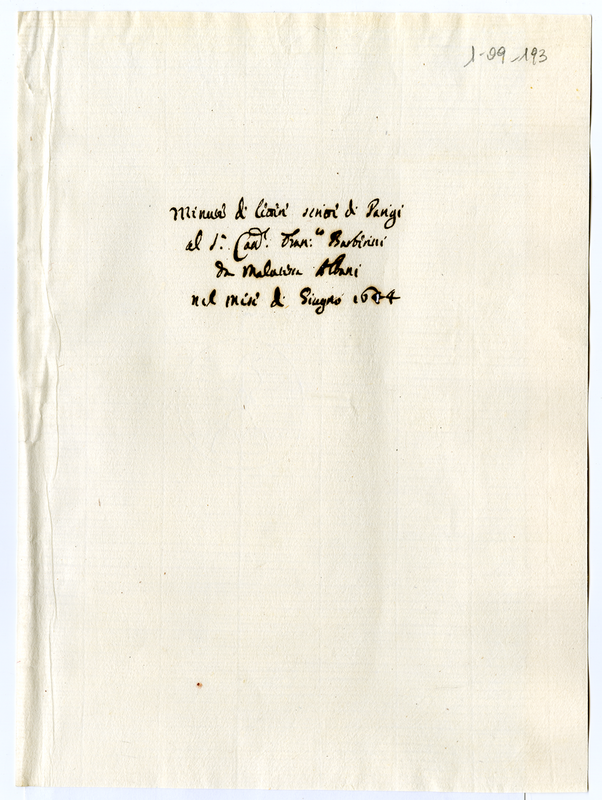 1-09-193
Minute di lettere scritte di Parigi
al S.r Card.l Fran.co Barberini
da Malatesta Albani
nel mese di Giugno 1644